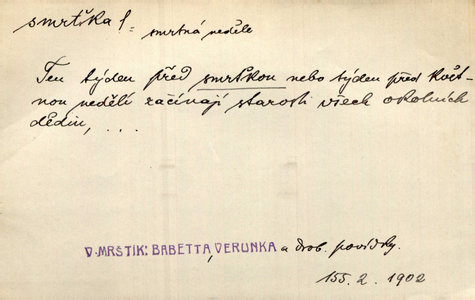 smrtka f.
= smrtná neděle
Ten týden před smrtkou nebo týden před Květ-
nou nedělí začínají starosti všech okolních
dědin, . . .
V. MRŠTIK: BABETTA, VERUNKA a drob. povídky.
155. 2. 1902